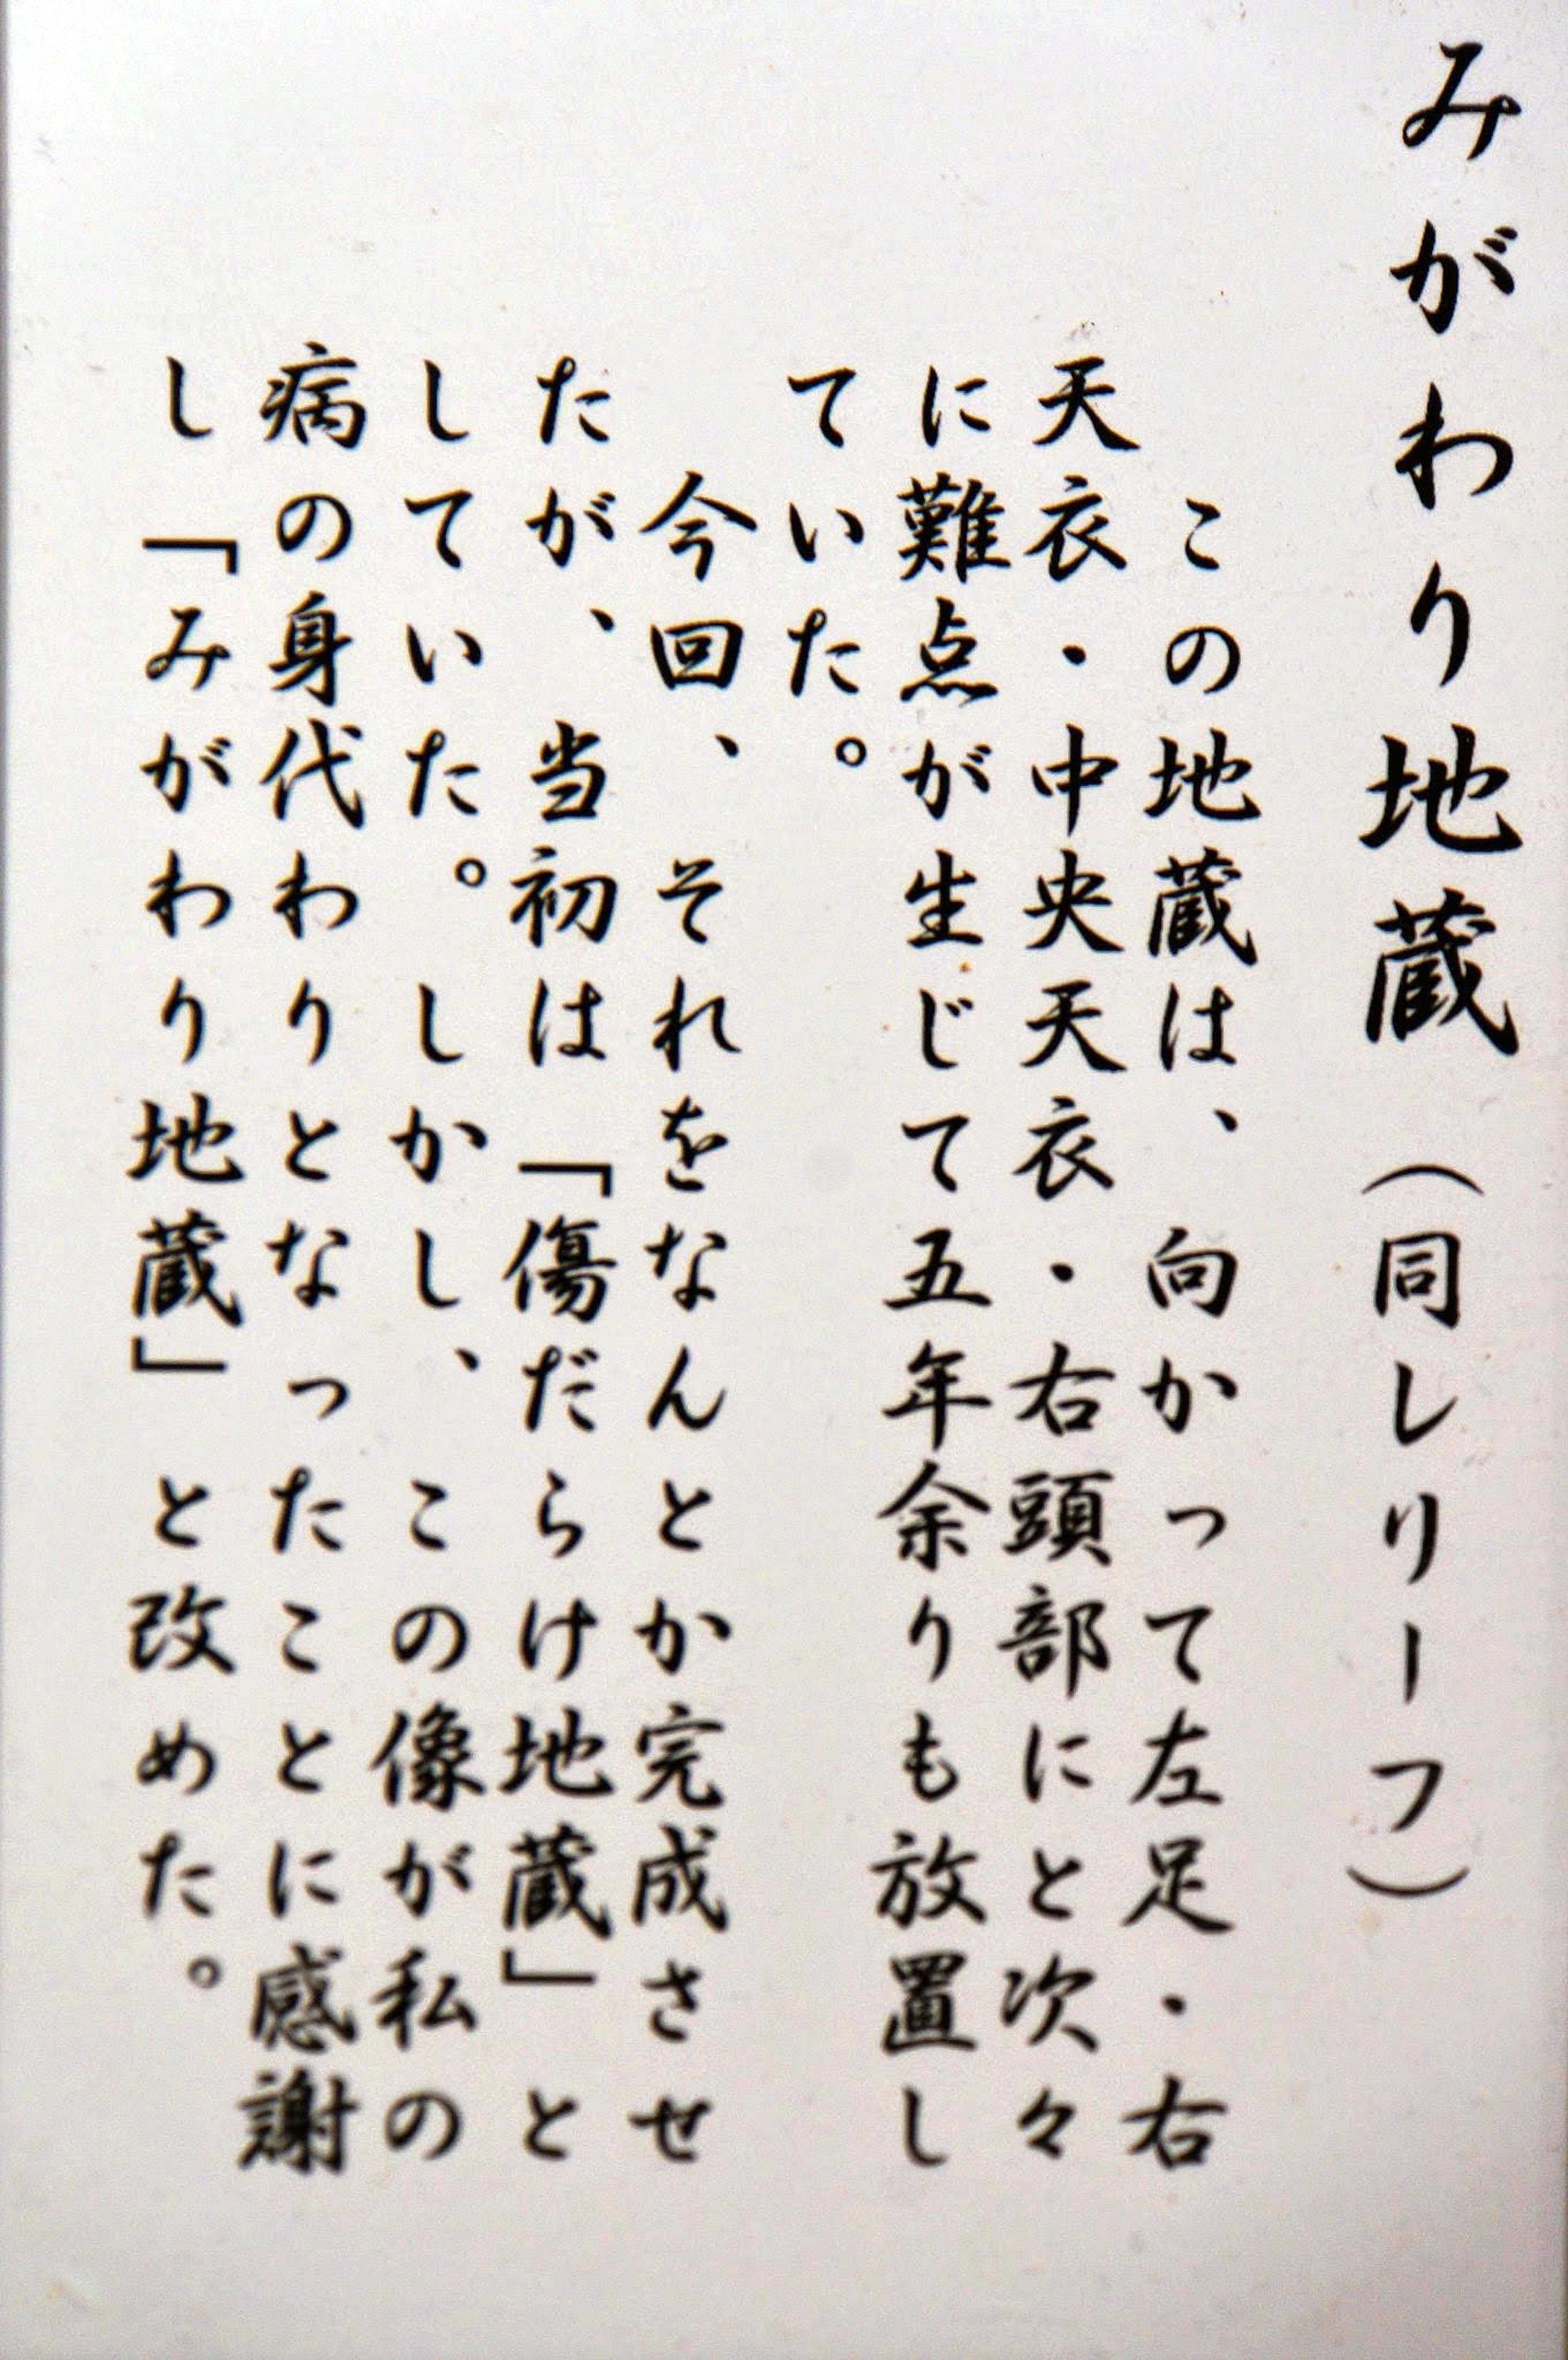 みがわり地蔵（同レリーフ）
この地蔵は、向かって左足・右
天衣・中央天衣・右頭部にと次々
に難点が生じて五年余りも放置し
ていた。
今回、それをなんとか完成させ
たが、当初は「傷だらけ地蔵」と
していた。しかし、この像が私の
病の身代わりとなったことに感謝
し「みがわり地蔵」と改めた。